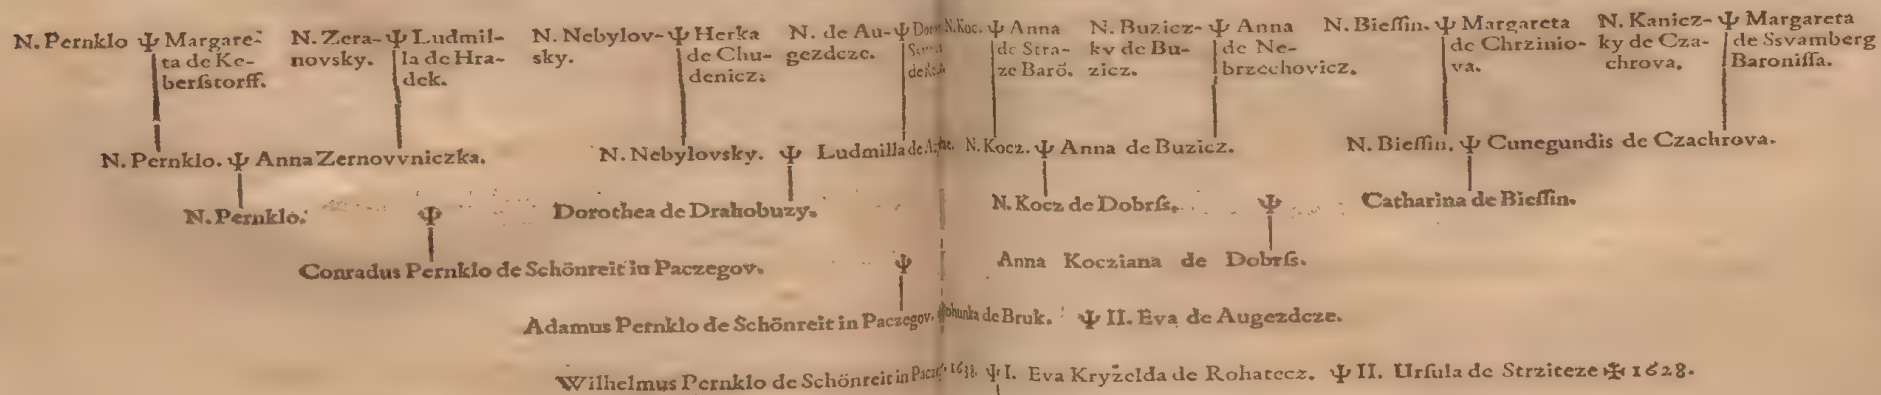 N. Pernklo Ψ Margare-
ta de Ke-
berſstorff.
N. Zera- Ψ Ludmil-
novsky. la de Hra-
dek.
N. Nebylov- Ψ Herka
sky. de Chu-
denicz.
N. de Au- Ψ
gezdcze.
N. Koc. Ψ Anna
de Stra-
ze Barõ.
N. Buzicz- Ψ Anna
ky de Bu- de Ne-
zicz. brzechovicz.
N. Bieſſin. Ψ Margareta
de Chrzinio-
va.
N. Kanicz- Ψ Margareta
ky de Cza- de Ssvamberg
chrova. Baroniſſa.
N. Pernklo. Ψ Anna Zernovvniczka. N. Nebylovsky. Ψ Ludmilla de N. Kocz. Ψ Anna de Buzicz. N. Bieſſin. Ψ Cunegundis de Czachrova.
N. Pernklo. Ψ Dorothea de Drahobuzy. N. Kocz de Dobrſs. Ψ Catharina de Bieſſin.
Conradus Pernklo de Schönreit in Paczegov. Ψ Anna Kocziana de Dobrſs.
Adamus Pernklo de Schönreit in Paczegov. de Bruk. Ψ II. Eva de Augezdcze.
Wilhelmus Pernklo de Schönreit in 1638. Ψ I. Eva Kryželda de Rohatecz. Ψ II. Urſula de Strziteze ✠ 1628.